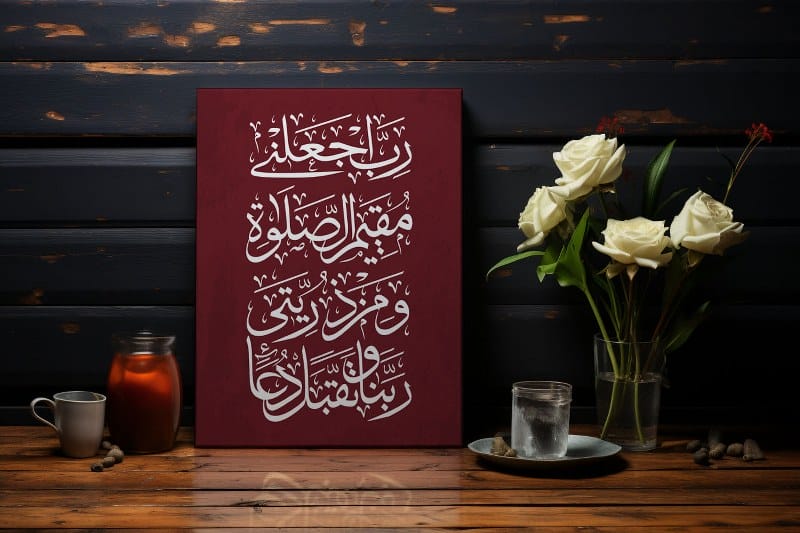 رَبِّ اجْعَلْنِي
مُقِيمَ الصَّلَاةِ
وَمِنْ ذُرِّيَّتِي
رَبَّنَا وَتَقَبَّلْ دُعَاءِ